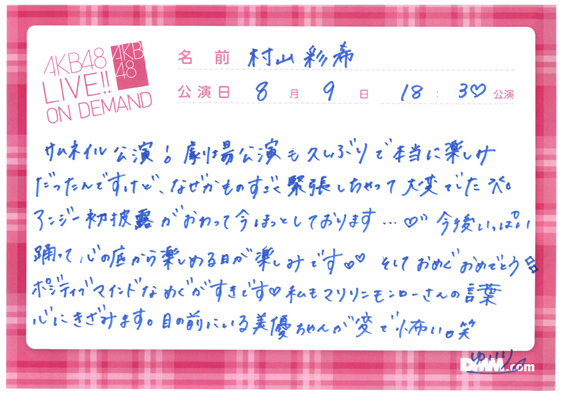 AKB48
LIVE!!
ON DEMAND
AKB
48
名前 村山彩希
公演日 8月9日 18:30公演
サムネイル公演! 劇場公演も久しぶりで本当に楽しみ
だったんですけど、なぜかものすごく緊張しちゃって大変でした
アンジー初披露がおわって今ほっとしております…♡ 今後いっぱい
踊って心の底から楽しめる日が楽しみです♡♡ そしておめぐおめでとう
ポジティブマインドなめぐがすきです♡私もマリリンモンローさんの言葉
心にきざみます。目の前にいる美優ちゃんが変で怖い。笑
ゆいりー
DMM.com